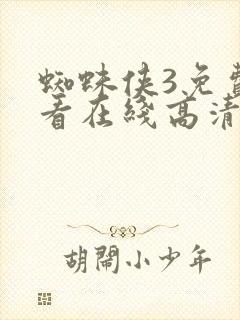 蜘蛛侠3免费
看在线高清
胡闹小少年